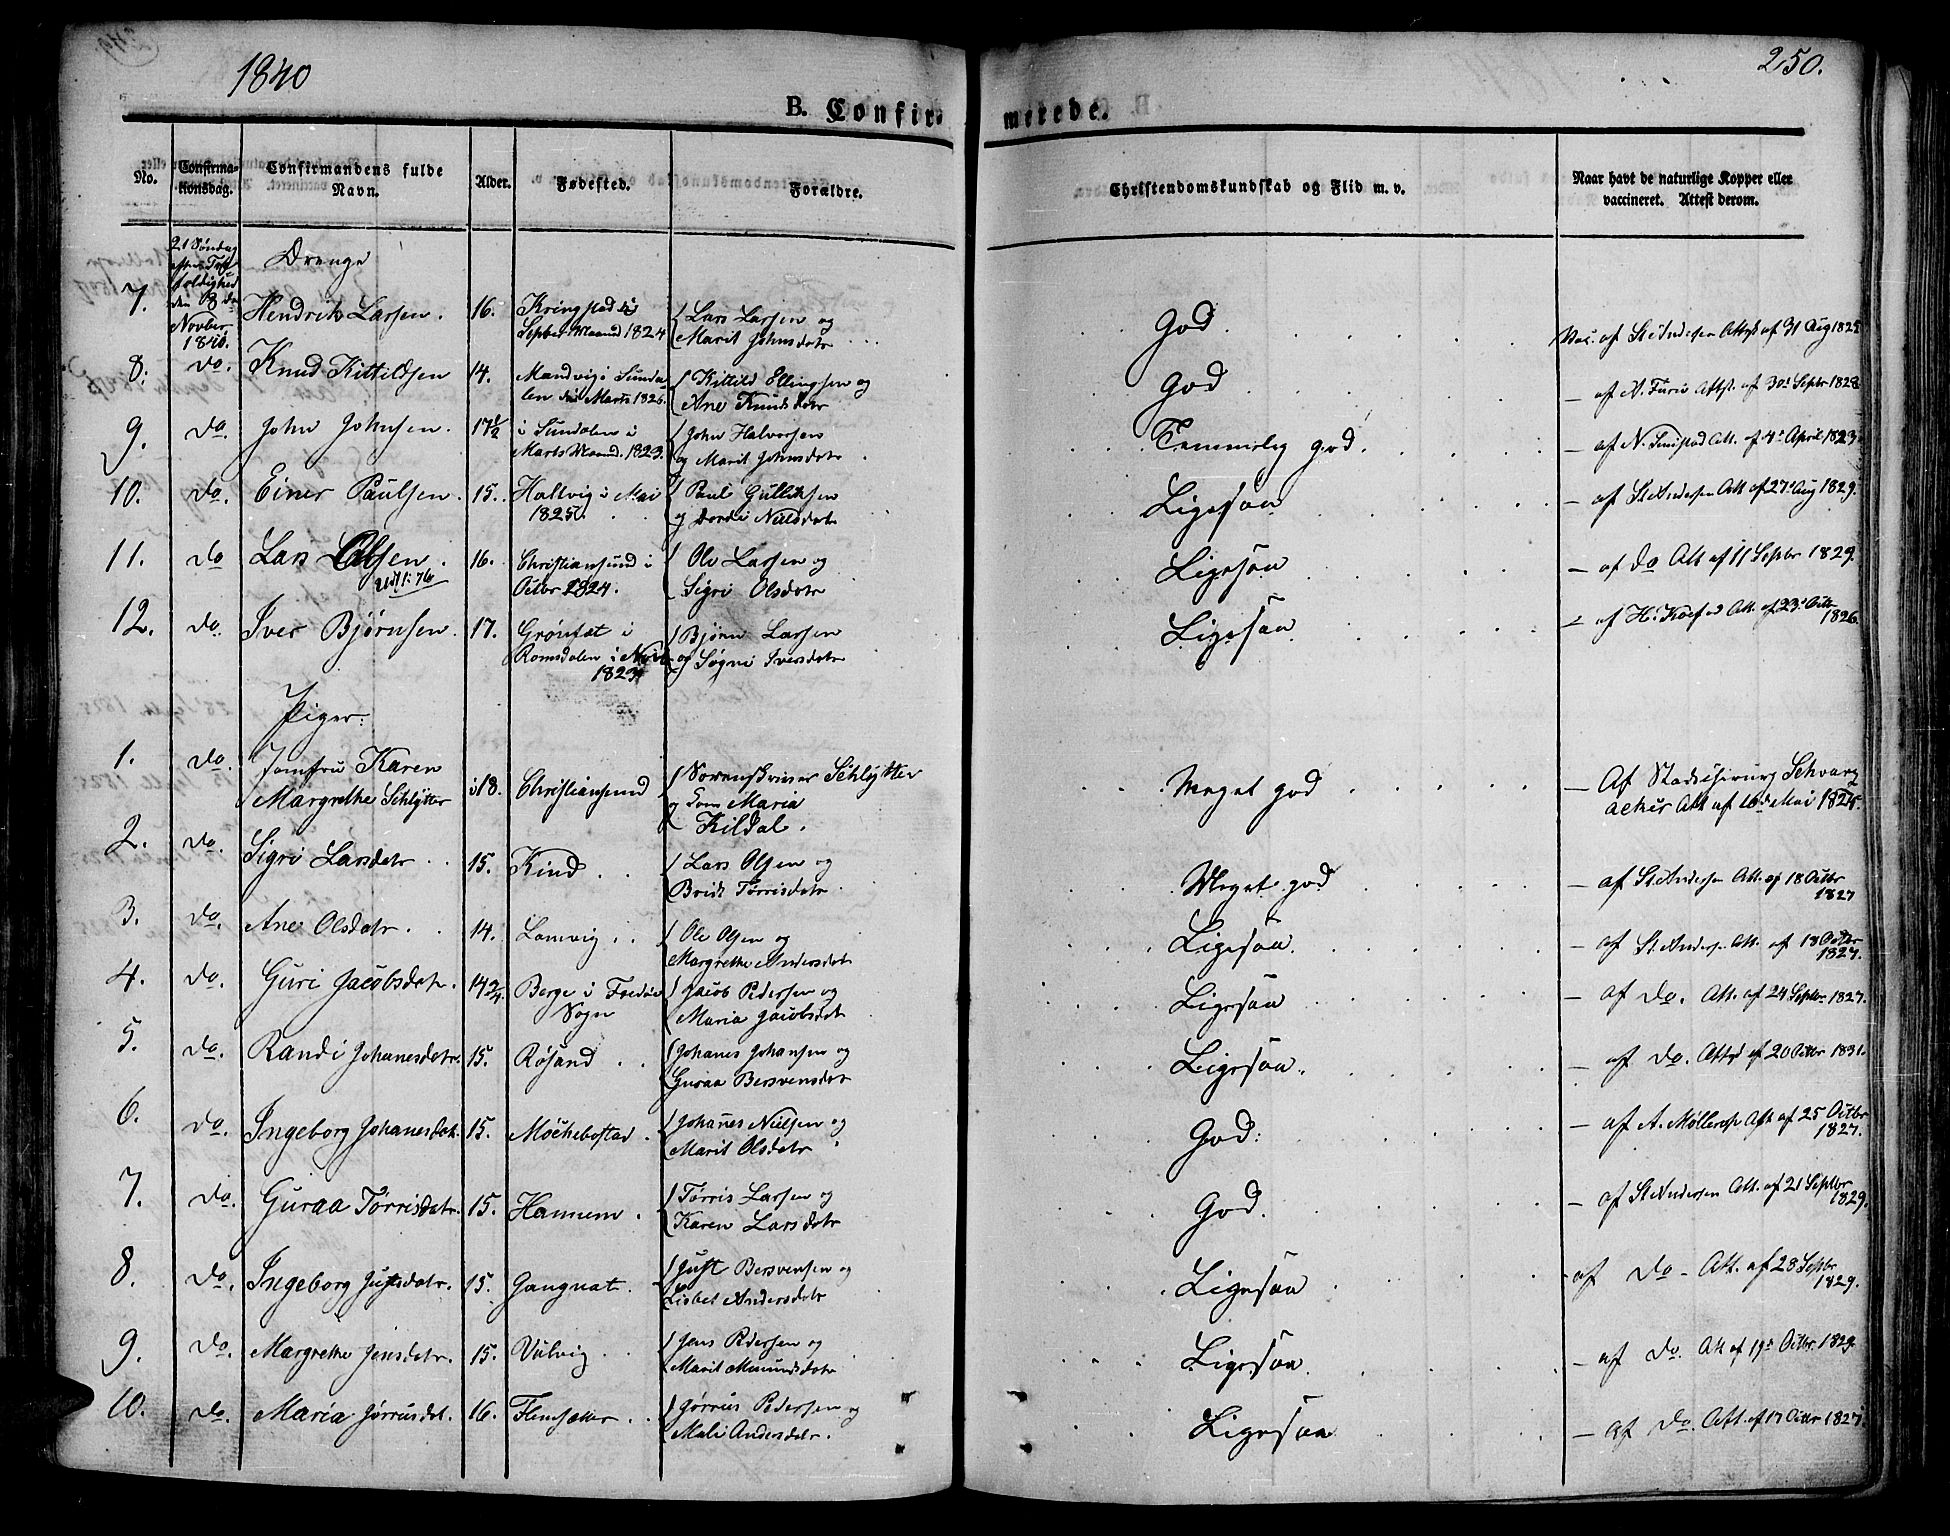 1840
250.
B. Confirmerede.
No. | Confirmationsdag. | Confirmandens fulde Navn. | Alder. | Fødested. | Forældre. | Christendomskundskab og Flid m. v. | Naar havt de naturlige Kopper eller vaccineret. Attest derom.
21 Søndag
den 8de Novber 1840.
Drenge
7. | Hendrik Larsen. | 16. | Kringstad i Septber Maaned 1824 | Lars Larsen og Marit Johnsdatr | God. | Vac. af St. Andersen Attest af 31 Aug 1825
8. | do. | Knud Kittildsen | 14. | Mandvig i Sundalen i Marts 1826. | Kittild Ellingsen og Ane Knudsdatr | God | – af A. Furu Attst. af 30. Septbr 1828
9. | do. | John Johnsen. | 17½ | i Sundalen i Marts Maand. 1823. | John Halvorsen og Marit Johnsdatr | Temmelig god. | – af N. Att. af 4de April 1823
10. | do. | Einer Paulsen. | 15. | Hallvig i Mai 1825. | Paul Gulliksen og Dordi Nielsdatr | Ligesaa | – af St. Andersen Att af 27. Aug 1829.
11. | do | Lars Olsen. | 16. | Christiansund i Octbr 1824. | Ole Larsen og Sigri Olsdatr | Ligesaa | – af do Att af 11 Septbr 1829.
12. | do. | Iver Bjørnsen. | 17. | Grønfæt i Romsdalen i Novbr 1823 | Bjørn Larsen og Søgni Iversdatr | Ligesaa. | – af H. Koefod Att. af 23. Octbr 1826.
Piger.
1. | do. | Jomfru Karen Margrethe Schlytter | 18. | Christiansund | Sorenskriver Schlytter og Maria Kildal. | Meget god | – Af Stadschirurg Schvarzacher Att af 16de Mai 1824.
2. | do. | Sigri Larsdatr | 15. | Kind | Lars Olsen og Brit Tørrisdatr | Meget god | – af St. Andersen Att. af 18 Octbr 1827
3. | do. | Ane Olsdatr. | 14. | Lomvig | Ole Olsen og Margrethe Andersdatr | Ligesaa. | – af St. Andersen Att. af 18 Octbr 1827.
4. | do. | Guri Jacobsdatr. | 14¾ | Berge i Fredøe Sogn | Jacob Pedersen og Maria Jacobsdatr | Ligesaa | – af do. Att. af 24 Septbr 1827.
5. | do. | Randi Johanesdatr. | 15. | Røsand | Johanes Johansen og Guraa Bersvensdatr | Ligesaa. | – af do. Attest af 20 Octbr 1831.
6. | do. | Ingeborg Johanesdatr. | 15. | Møckebostad. | Johanes Nielsen og Marit Olsdatr | God. | – af A. Møllerop Att af 25 Octbr 1827.
7. | do. | Guraa Tørrisdatr. | 15. | Hannem. | Tørris Larsen og Karen Larsdatr | God. | – af St. Andersen Att. af 21 Septbr 1829.
8. | do. | Ingeborg Justsdatr. | 15. | Gangnat. | Just Bersvensen og Lisbet Andersdatr | Ligesaa | – af do – Att. af 28 Septbr 1829.
9. | do. | Margrethe Jensdatr. | 15. | Vulvig | Jens Pedersen og Marit Amundsdatr | Ligesaa. | – af do. Att af 19. Octbr 1829.
10. | do. | Maria Jørrusdat. | 16. | Flemsætter | Jørrus Pedersen og Mali Andersdatr. | Ligesaa | – af do. Att. af 17 Octbr 1827.